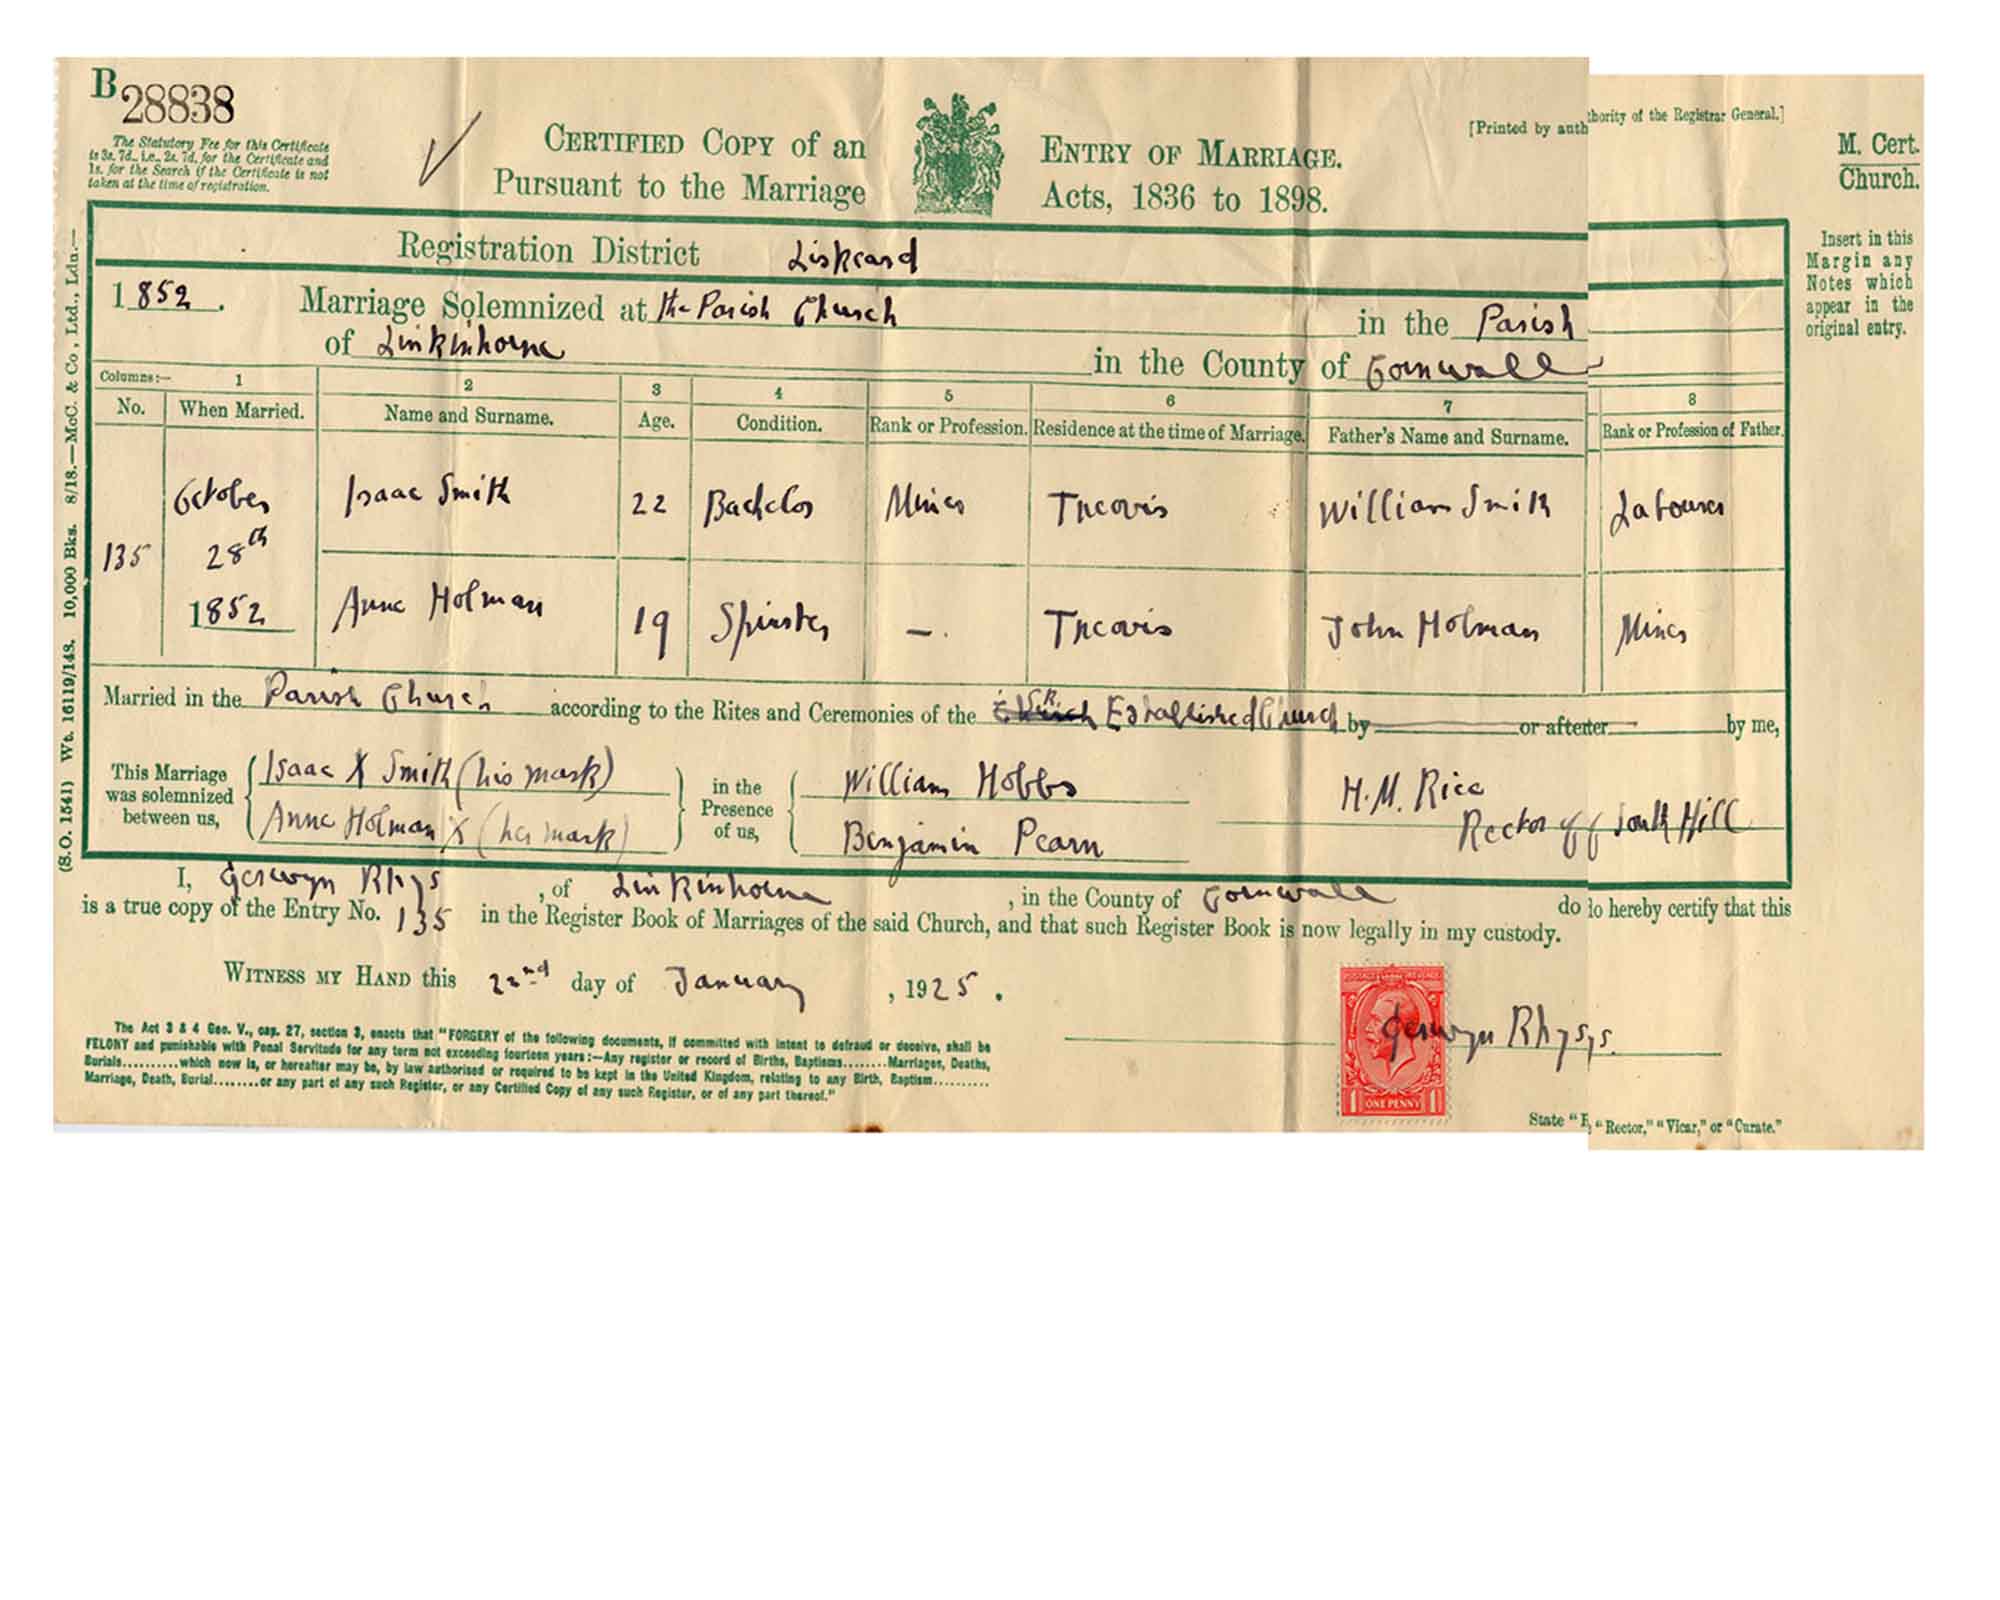 B 28838
The Statutory Fee for this Certificate
is 3s. 7d., i.e., 2s. 7d. for the Certificate and
1s. for the Search if the Certificate is not
taken at the time of registration.
CERTIFIED COPY OF AN ENTRY OF MARRIAGE.
Pursuant to the Marriage Acts, 1836 to 1898.
[Printed by auth thority of the Registrar General.]
M. Cert.
Church.
Insert in this
Margin any
Notes which
appear in the
original entry.
(S.O. 1541) Wt. 16119/148. 10,000 Bks. 8/18.—McC. & Co., Ltd., Ldn.—
Registration District Liskeard
1852. Marriage Solemnized at the Parish Church in the Parish
of Linkinhorne in the County of Cornwall
Columns:— 1 2 3 4 5 6 7 8
No. When Married. Name and Surname. Age. Condition. Rank or Profession. Residence at the time of Marriage. Father's Name and Surname. Rank or Profession of Father.
135 October 28th 1852
Isaac Smith 22 Bachelor Miner Treovis William Smith Labourer
Anne Holman 19 Spinster —. Treovis John Holman Miner
Married in the Parish Church according to the Rites and Ceremonies of the Established Church by or after ter by me,
This Marriage was solemnized between us,
Isaac X Smith (his mark)
Anne Holman X (her mark)
in the Presence of us,
William Hobbs
Benjamin Pearn
H. M. Rice
Rector of f South Hill
I, Gerwyn Rhys, of Linkinhorne, in the County of Cornwall do lo hereby certify that this
is a true copy of the Entry No. 135 in the Register Book of Marriages of the said Church, and that such Register Book is now legally in my custody.
WITNESS MY HAND this 22nd day of January, 1925.
The Act 3 & 4 Geo. V., cap. 27, section 3, enacts that "FORGERY of the following documents, if committed with intent to defraud or deceive, shall be
FELONY and punishable with Penal Servitude for any term not exceeding fourteen years:—Any register or record of Births, Baptisms........Marriages, Deaths,
Burials..........which now is, or hereafter may be, by law authorised or required to be kept in the United Kingdom, relating to any Birth, Baptism..........
Marriage, Death, Burial........or any part of any such Register, or any Certified Copy of any such Register, or of any part thereof."
POSTAGE REVENUE
1 ONE PENNY 1
Gerwyn Rhysys.
State "R "Rector," "Vicar," or "Curate."